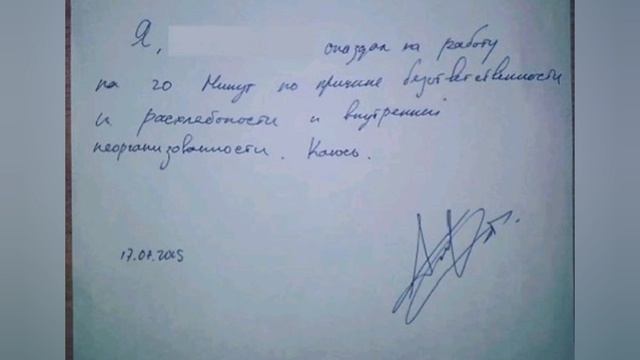 Я, опоздал на работу
на 20 минут по причине безответственности
и расхлебоности и внутренней
неорганизованности. Каюсь.
17.07.2015